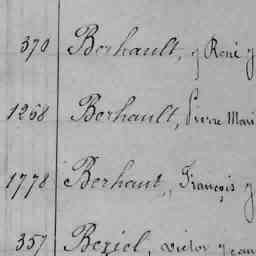 370 Berhault, y René y
1268 Berhault, Pierre Mari
1778 Berhaut, François y
357 Beziel, victor y ean